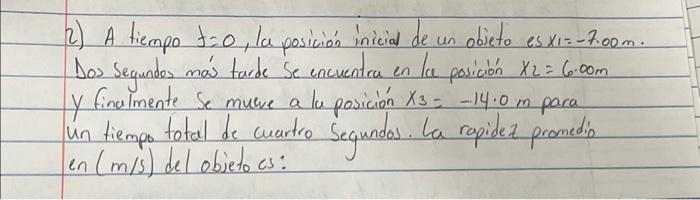 2) A tiempo t=0, la posición inicial de un objeto es x1=-7.00m.
Dos segundos más tarde se encuentra en la posición x2=6.00m
y finalmente se mueve a la posición x3= -14.0 m para
un tiempo total de cuartro segundos. La rapidez promedio
en (m/s) del objeto es: